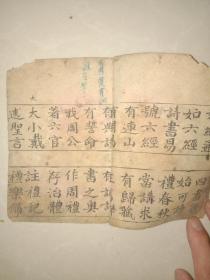 經通 四書
如六經 始可讀
詩書易 禮春秋
號六經 當講求
有連山 有歸藏
有典謨 有訓誥
有誓命 書之奧
我周公 作周禮
著六官 存治體
大小戴 註禮記
述聖言 禮樂備